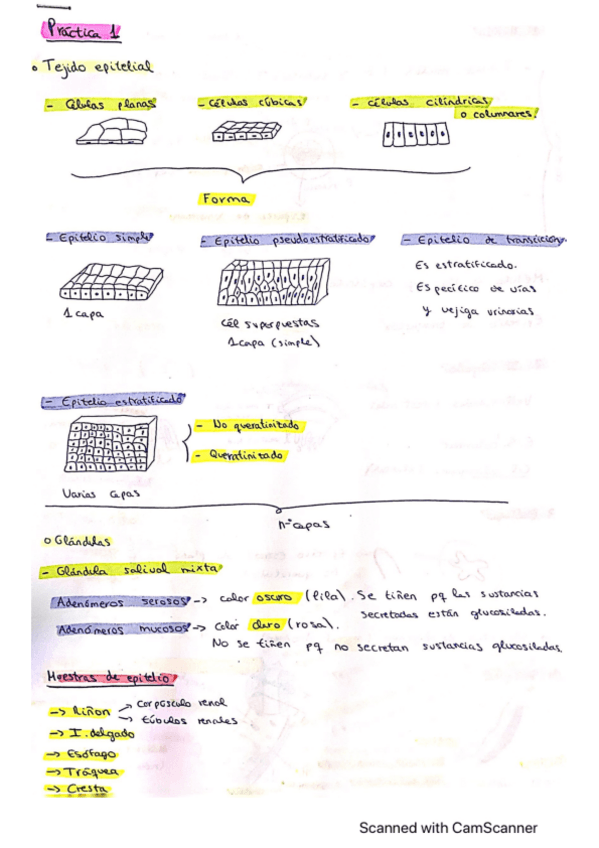 Práctica 1
o Tejido epitelial
- Células planas
- Células cúbicas
- Células cilíndricas
o columnares.
Forma
- Epitelio simple
- Epitelio pseudoestratificado
- Epitelio de transición.
Es estratificado.
Específico de vías
y vejiga urinarias
1 capa
cél superpuestas
1 capa (simple)
- Epitelio estratificado
- No queratinizado
- Queratinizado
Varias capas
nº capas
o Glándulas
- Glándula salival mixta
Adenómeros serosos -> color oscuro (lila). Se tiñen pq las sustancias
secretadas están glucosiladas.
Adenómeros mucosos -> Color claro (rosa).
No se tiñen pq no secretan sustancias glucosiladas.
Muestras de epitelio
-> Riñon -> Corpúsculo renal
-> túbulos renales
-> I. delgado
-> Esófago
-> Tráquea
-> Cresta
Scanned with CamScanner